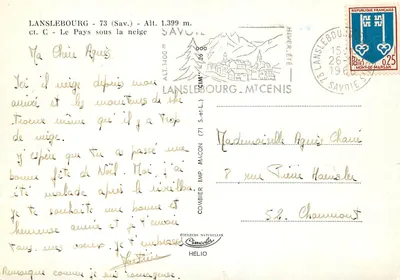 LANSLEBOURG - 73 (Sav.) - Alt. 1.399 m.
CI. C - Le Pays sous la neige
Ma Chère Agnès
Ici il neige depuis mon
arrivé et les moniteurs de ski
trouve même que il y a trop
de neige.
J'espère que tu a passé une
bonne fêt de Noël. Moi, j'ai
été malade après le réveillon
Je te souhaite une bonne et
heureuse année et je t'envoi
tous mes voeux. Je t'embrasse
Remarque comme je suis
SAVOIE
ALT. 1400 m
HIVER ÉTÉ
LANSLEBOURG - Mt CENIS
LANSLEBOURG
15
26-
SAVOIE
REPUBLIQUE FRANCAISE
POSTES
0,25
MONT-DE-MARSAN
COMBIER IMP. MACON (71 S.-et-L.) "CIM"
Mademoiselle Agnès
7 rue Pierre
52. Chaumont
HELIO